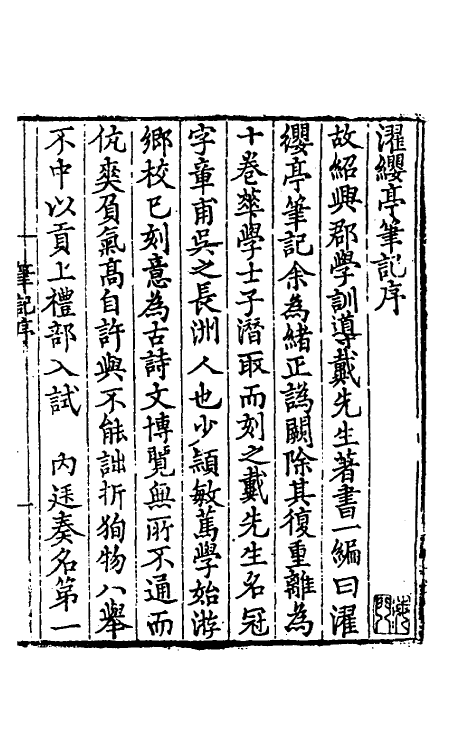 濯纓亭筆記序
故紹興郡學訓導戴先生著書一編曰濯
纓亭筆記余為緒正譌闕除其復重離為
十卷華學士子潛取而刻之戴先生名冠
字章甫吳之長洲人也少頴敏篤學始游
鄉校已刻意為古詩文博覽無所不通而
伉爽負氣高自許與不能詘折狥物八舉
不中以貢上禮部入試 內廷奏名第一
筆記序